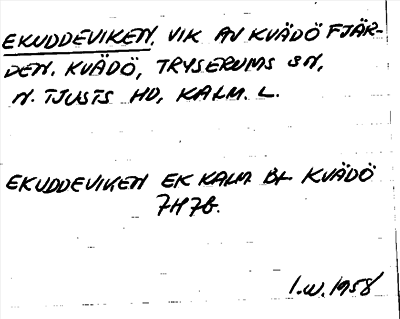 EKUDDEVIKEN, VIK AV KVÄDÖ FJÄR-
DEN. KVÄDÖ, TRYSERUMS SN,
N. TJUSTS HD, KALM. L.
EKUDDEVIKEN EK KALM BL KVÄDÖ
7H7b.
I.W. 1958